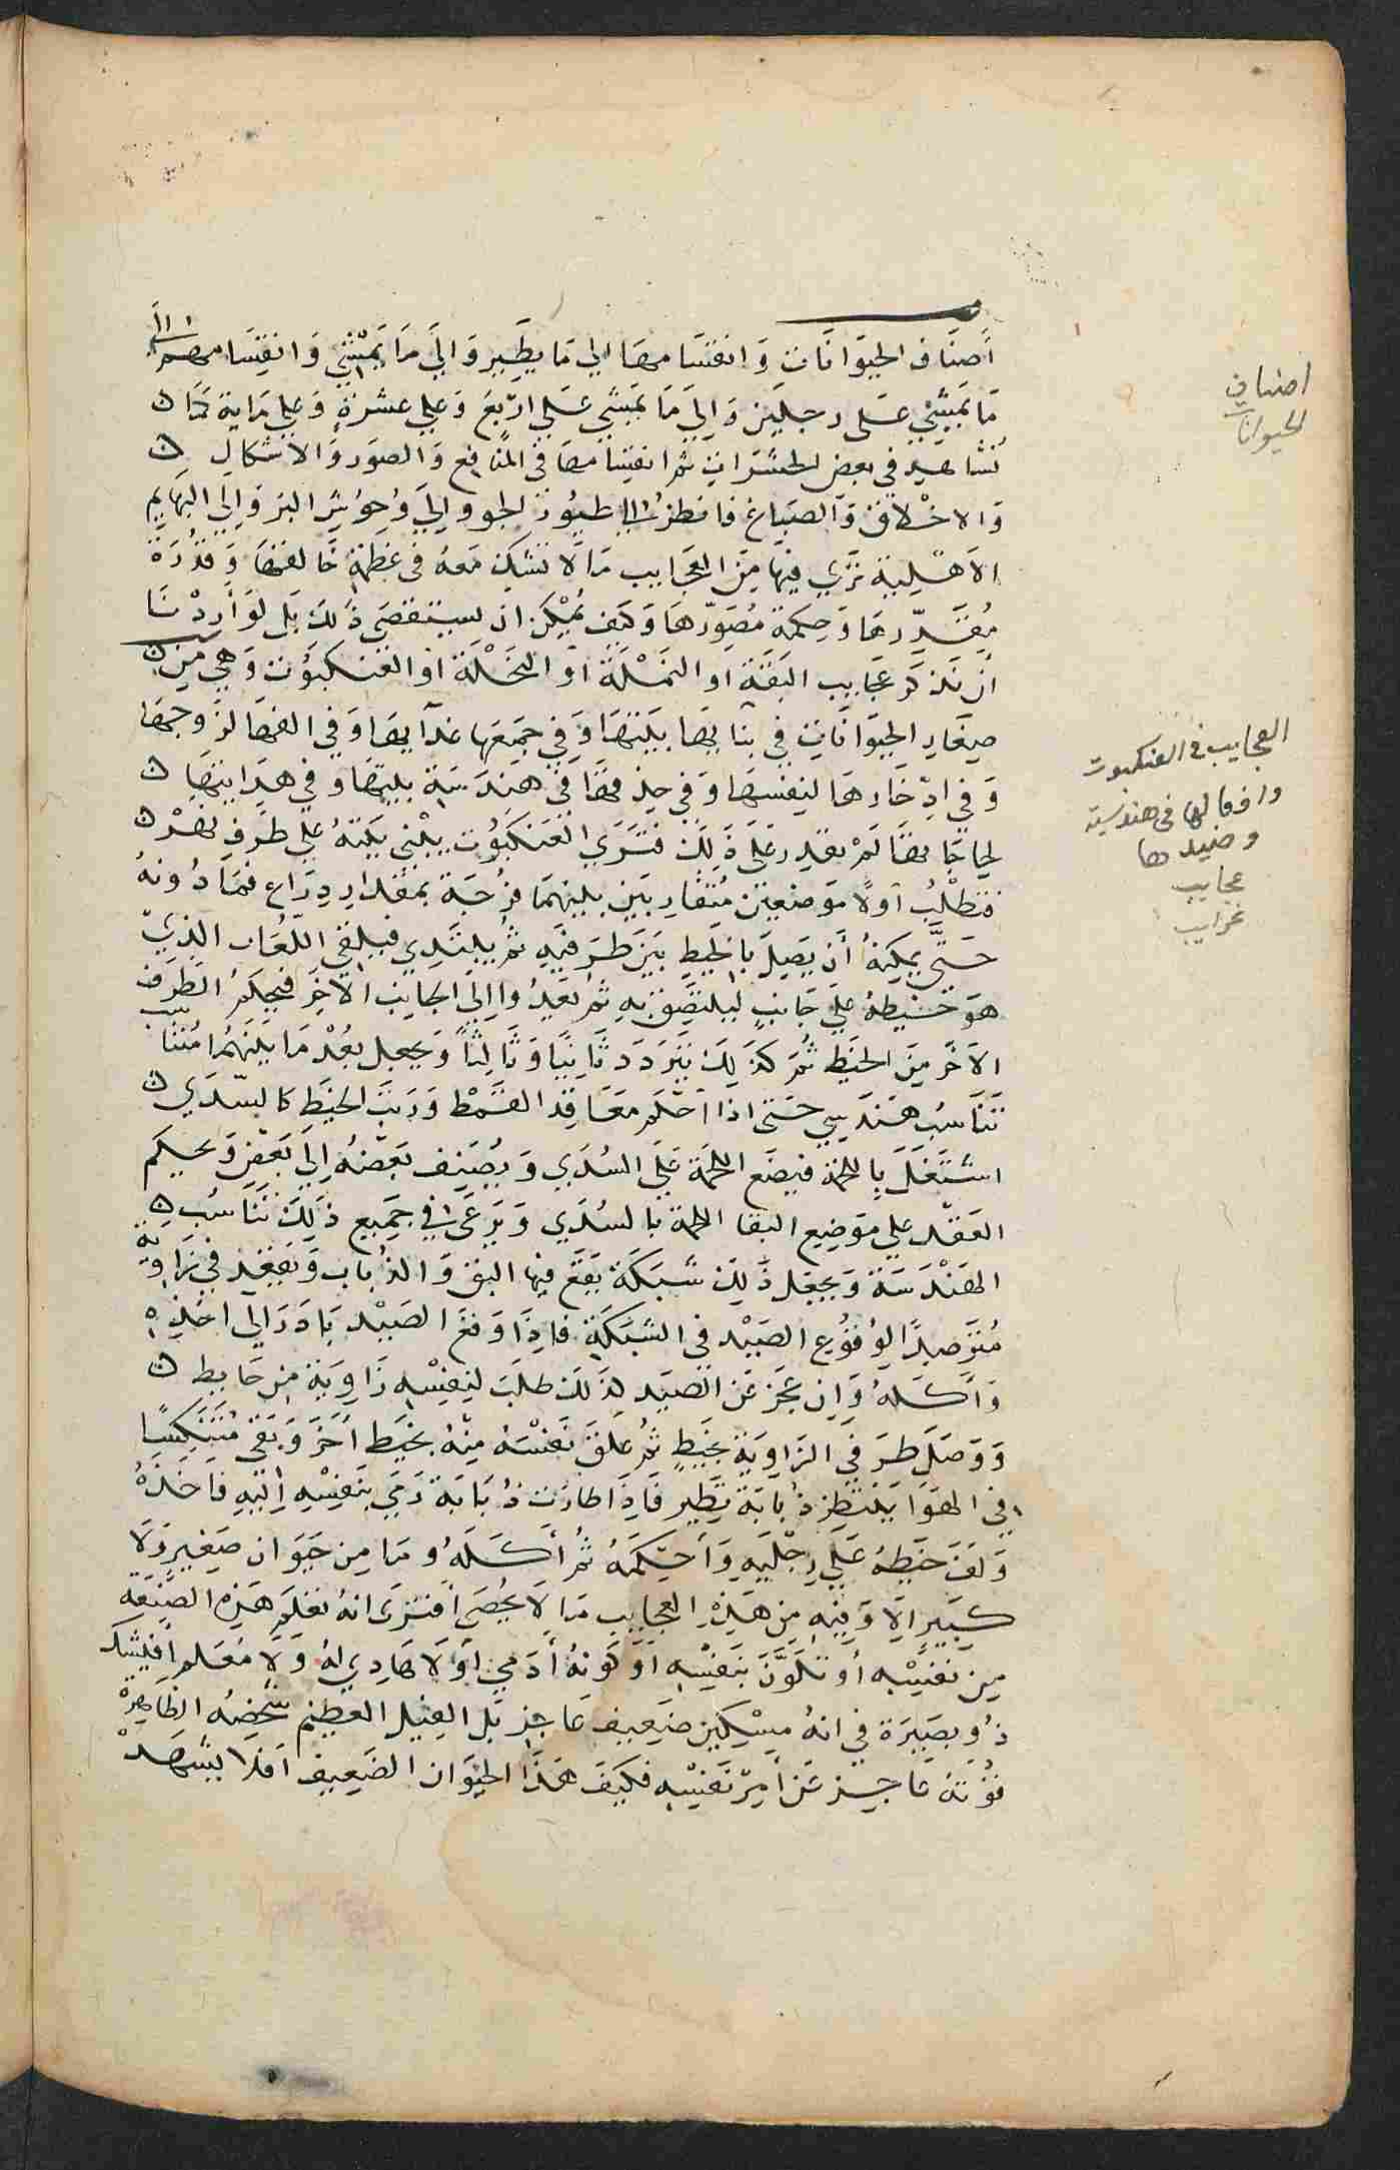 أصناف الحيوانات وانقسامها الي ما يطير والي ما يمشي وانقسامها الي
ما يمشي علي رجلين والي ما يمشي علي اربع وعلي عشرة وعلي ماية كما
نشاهد في بعض الحشرات ثم انقسامها في المنافع والصور والاشكال
والاخلاق والصباغ فانظر الي طيور الجو والي وحوش البر والي البهايم
الاهلية تري فيها من العجايب ما لا تشك معه في عظمة خالقها وقدرة
مقدرها وحكمة مصورها وكيف يمكن ان يستقصي ذلك بل لو أردنا
أن نذكر عجايب البقة او النملة او النحلة او العنكبوت وهي من
صغار الحيوانات في بنايها بيتها وفي جمعها غدآيها وفي الفها لزوجها
وفي ادخارها لنفسها وفي حذقها في هندسة بيتها وفي هدايتها
لحاجاتها لم نقدر علي ذلك فتري العنكبوت يبني بيته علي طرف نهر
فتطلب أولاً موضعين متقاربين بينهما فرجة بمقدار ذراع فما دونه
حتي يمكنه أن يصل بالخيط بين طرفيه ثم يبتدي فيلقي اللعاب الذي
هو خيطه علي جانب ليلتصق به ثم يعدوا الي الجانب الاخر فيحكم الطرف
الاخر من الخيط ثم كذلك يتردد ثانيا وثالثا ويجعل بعد ما بينهما متناسب
تناسب هندسي حتي اذا احكم معاقد القمط ورتب الخيط كالسدي
اشتغل باللحمة فيضع اللحمة علي السدي ويضيف بعضه إلي بعض ويحكم
العقد علي موضع التقا اللحمة بالسدي ويرعي في جميع ذلك تناسب
الهندسة ويجعل ذلك شبكة يقع فيها البق والذباب ويقعد في زاوية
مترصدا لوقوع الصيد في الشبكة فاذا وقع الصيد بادر الي اخذه
وأكله وان عجز عن الصيد لذلك طلب لنفسه زاوية من حايط
ووصل طرفي الزاوية بخيط ثم علق نفسه منه بخيط أخر وبقي متنكسا
في الهوا ينتظر ذبابة تطير فاذا طارت ذبابة رمي بنفسه اليه فاخذه
ولف خيطه علي رجليه وأحكمه ثم أكله وما من حيوان صغير ولا
كبير الا وفيه من هذه العجايب ما لا يحصي أفتري انه تعلم هذه الصنعه
من نفسه أو تكون بنفسه أو كونه أدمي أو لا هادي له ولا معلم أفيشك
ذو بصيرة في انه مسكين ضعيف عاجز بل الفيل العظيم شخصه الظاهرة
قوته عاجز عن أمر نفسه فكيف هذا الحيوان الضعيف افلا يشهد
اصناف
الحيوانات
العجايب في العنكبوت
وافعالها في هندسته
وصيدها
عجايب
غرايب